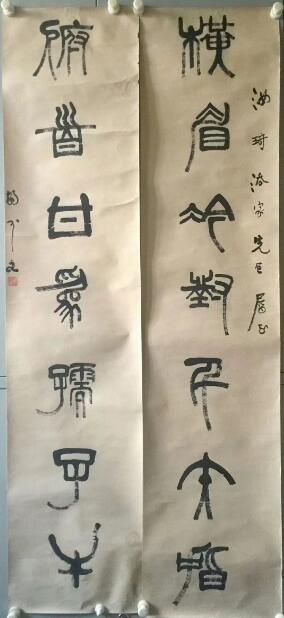 汝琦法家先生屬正
橫眉冷對千夫指
俯首甘為孺子牛